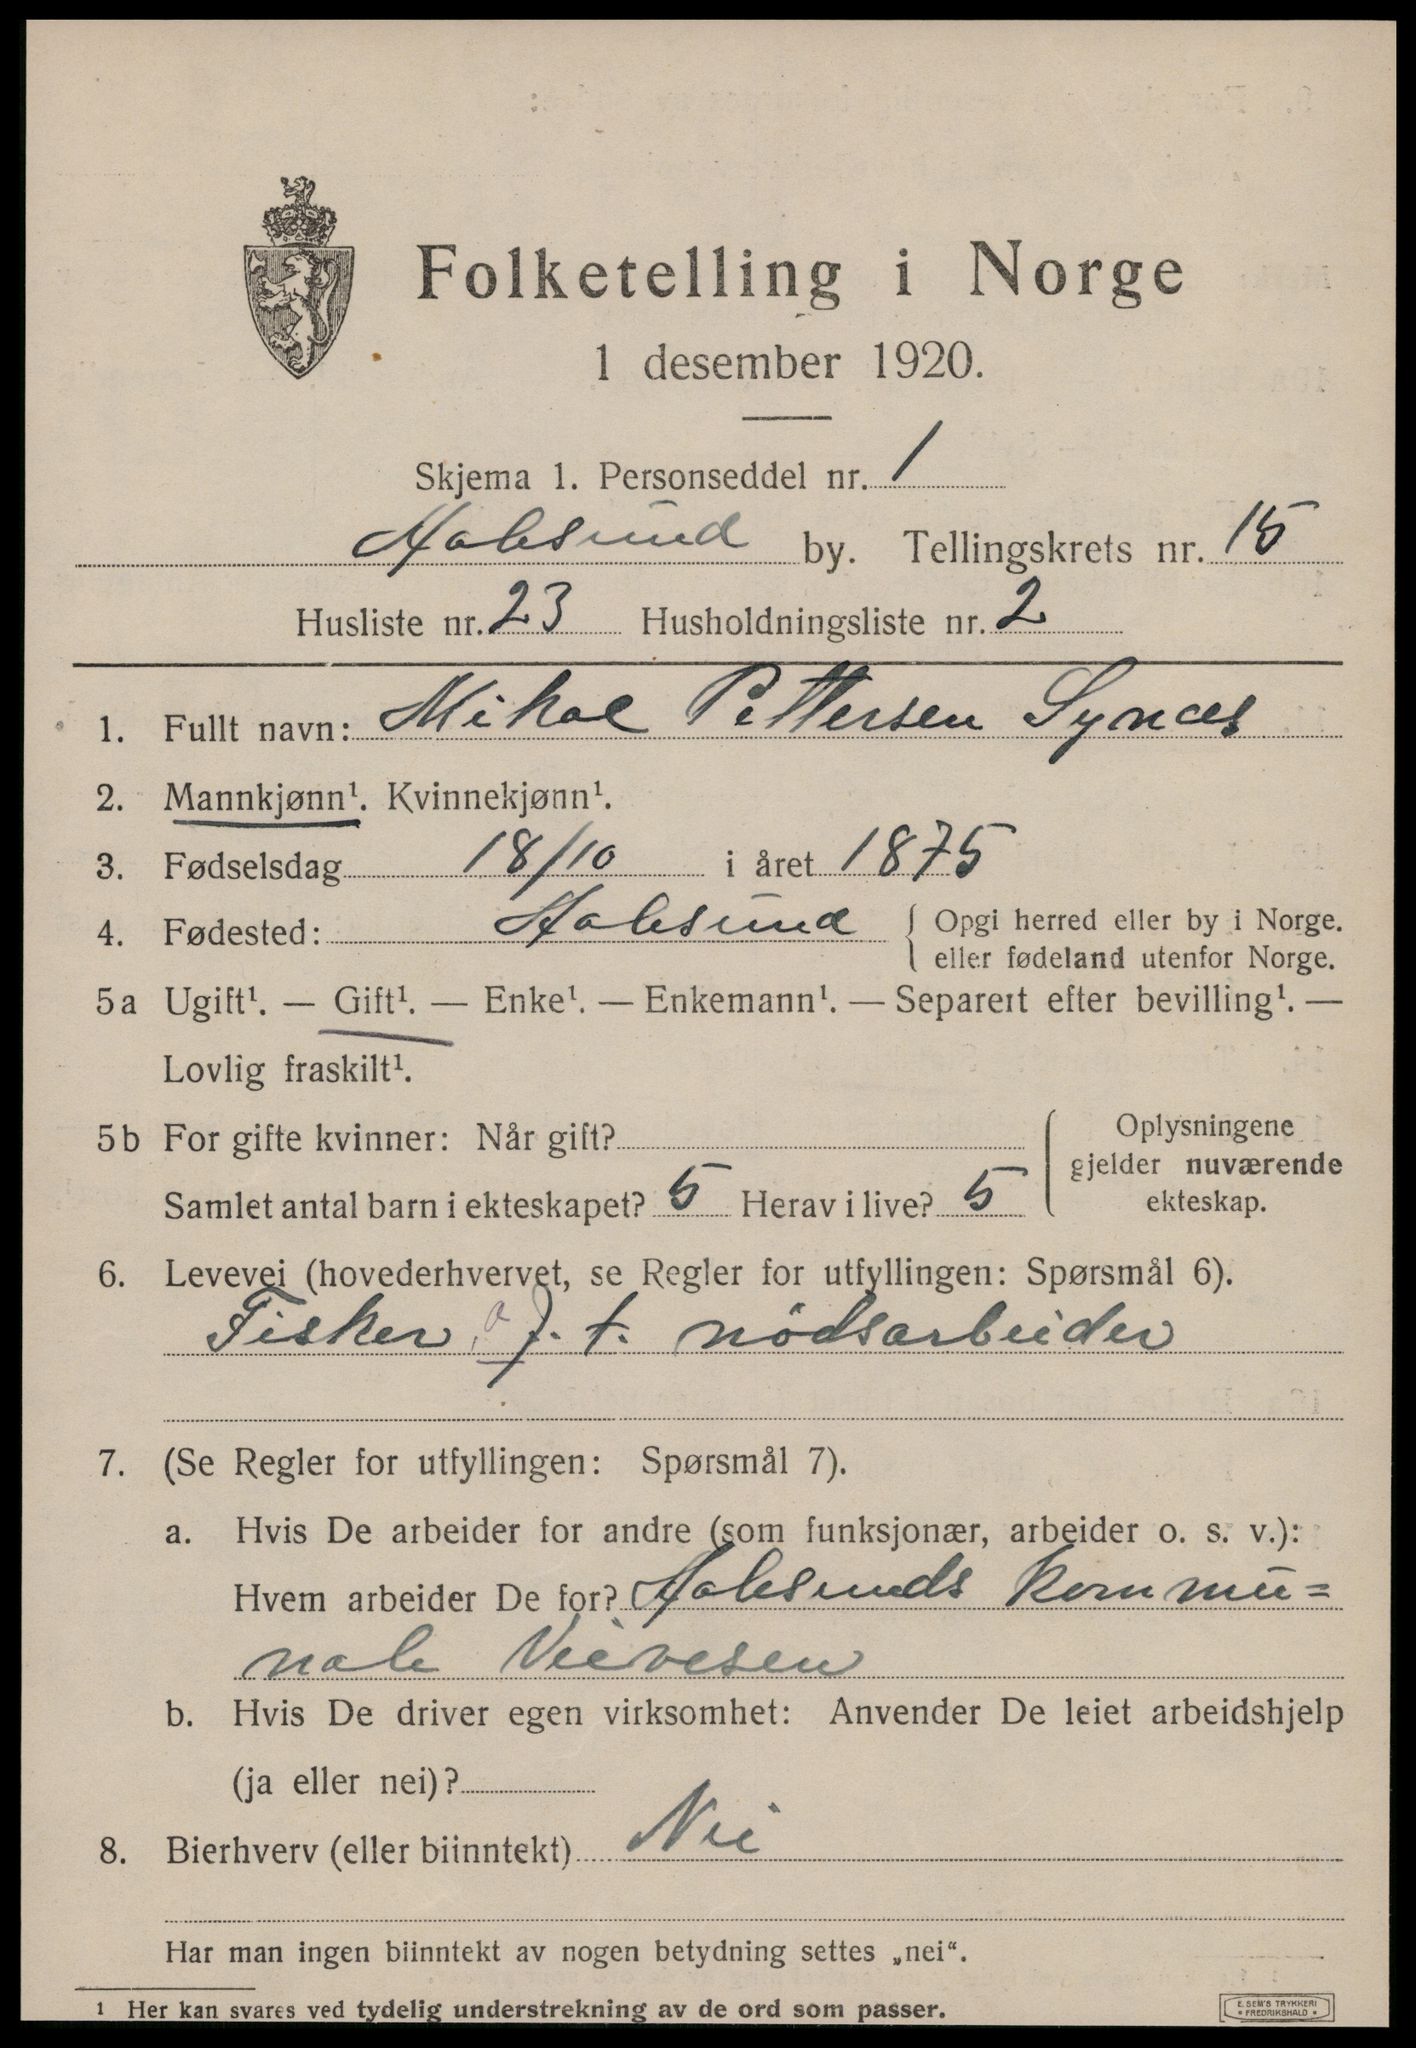 Folketelling i Norge
1 desember 1920.
Skjema 1. Personseddel nr. 1
Aalesund by. Tellingskrets nr. 15
Husliste nr. 23 Husholdningsliste nr. 2
1. Fullt navn: Mikal Pettersen Synæs
2. Mannkjønn¹. Kvinnekjønn¹.
3. Fødselsdag 18/10 i året 1875
4. Fødested: Aalesund { Opgi herred eller by i Norge.
eller fødeland utenfor Norge.
5a Ugift¹. — Gift¹. — Enke¹. — Enkemann¹. — Separert efter bevilling¹. —
Lovlig fraskilt¹.
5b For gifte kvinner: Når gift?
Samlet antal barn i ekteskapet? 5 Herav i live? 5
Oplysningene
gjelder nuværende
ekteskap.
6. Levevei (hovederhvervet, se Regler for utfyllingen: Spørsmål 6).
Fisker, f. t. nödsarbeider
7. (Se Regler for utfyllingen: Spørsmål 7).
a. Hvis De arbeider for andre (som funksjonær, arbeider o. s. v.):
Hvem arbeider De for? Aalesunds kommu=
nale Veivesen
b. Hvis De driver egen virksomhet: Anvender De leiet arbeidshjelp
(ja eller nei)?
8. Bierhverv (eller biinntekt) Nei
Har man ingen biinntekt av nogen betydning settes „nei“.
¹ Her kan svares ved tydelig understrekning av de ord som passer.
E. SEM'S TRYKKERI
* FREDRIKSHALD *